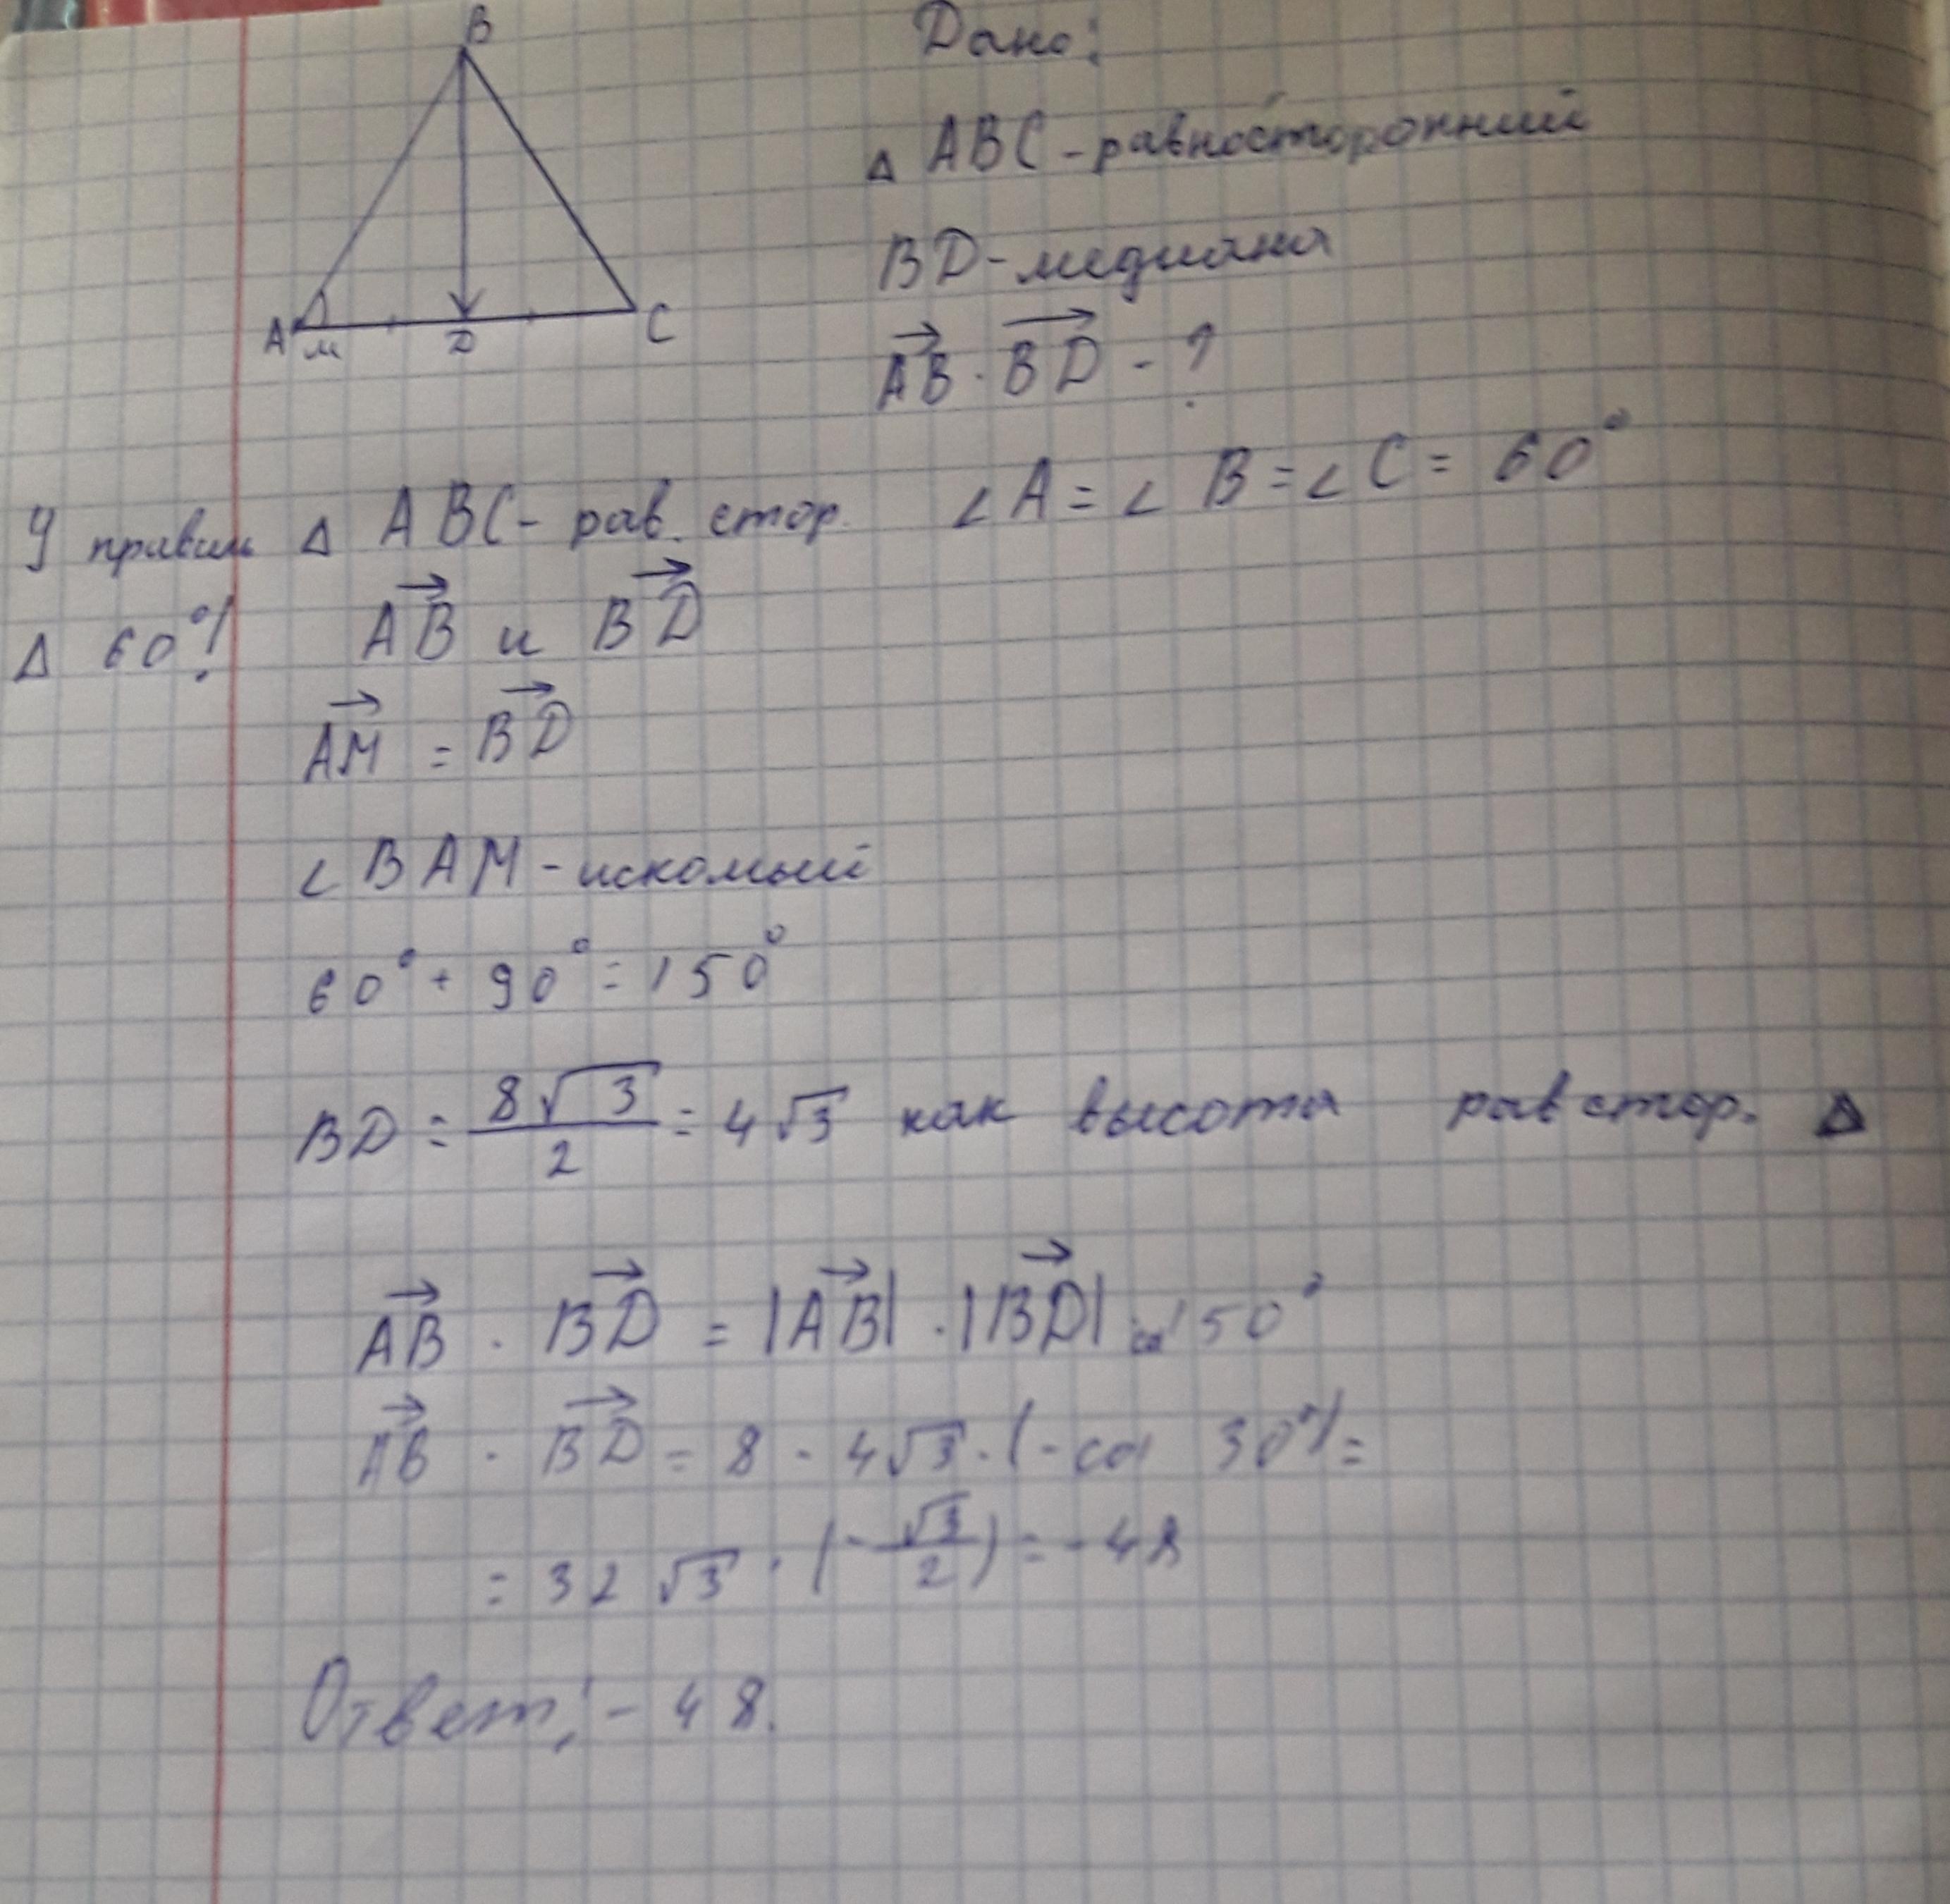 B
A м D C
Дано:
△ ABC - равносторонний
BD - медиана
AB · BD - ?
У правил △ ABC - рав. стор. ∠A = ∠B = ∠C = 60°
△ 60°! AB и BD
AM = BD
∠BAM - искомый
60° + 90° = 150°
BD = 8√3/2 = 4√3 как высота рав стор. △
AB · BD = |AB| · |BD| · cos 150°
AB · BD = 8 · 4√3 · (-cos 30°) =
= 32√3 · (-√3/2) = -48
Ответ: -48.